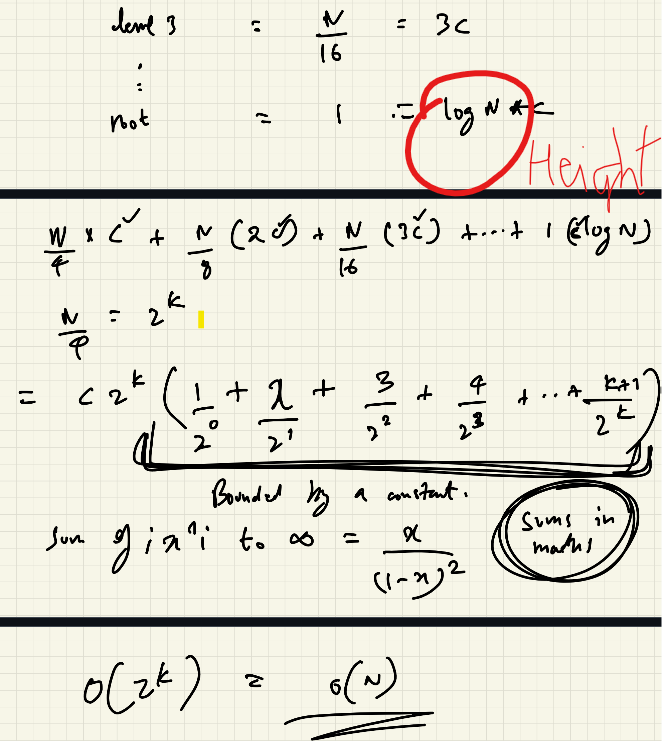 level 3 = N/16 = 3C
⋮
root = 1 = log N * C
Height
N/4 * C + N/8 (2C) + N/16 (3C) + ... + 1 (C log N)
N/4 = 2^k
= C 2^k (1/2^0 + 2/2^1 + 3/2^2 + 4/2^3 + ... + k+1/2^k)
Bounded by a constant.
Sum of i x^i i to ∞ = x/(1-x)^2
Sums in maths
O(2^k) = O(N)